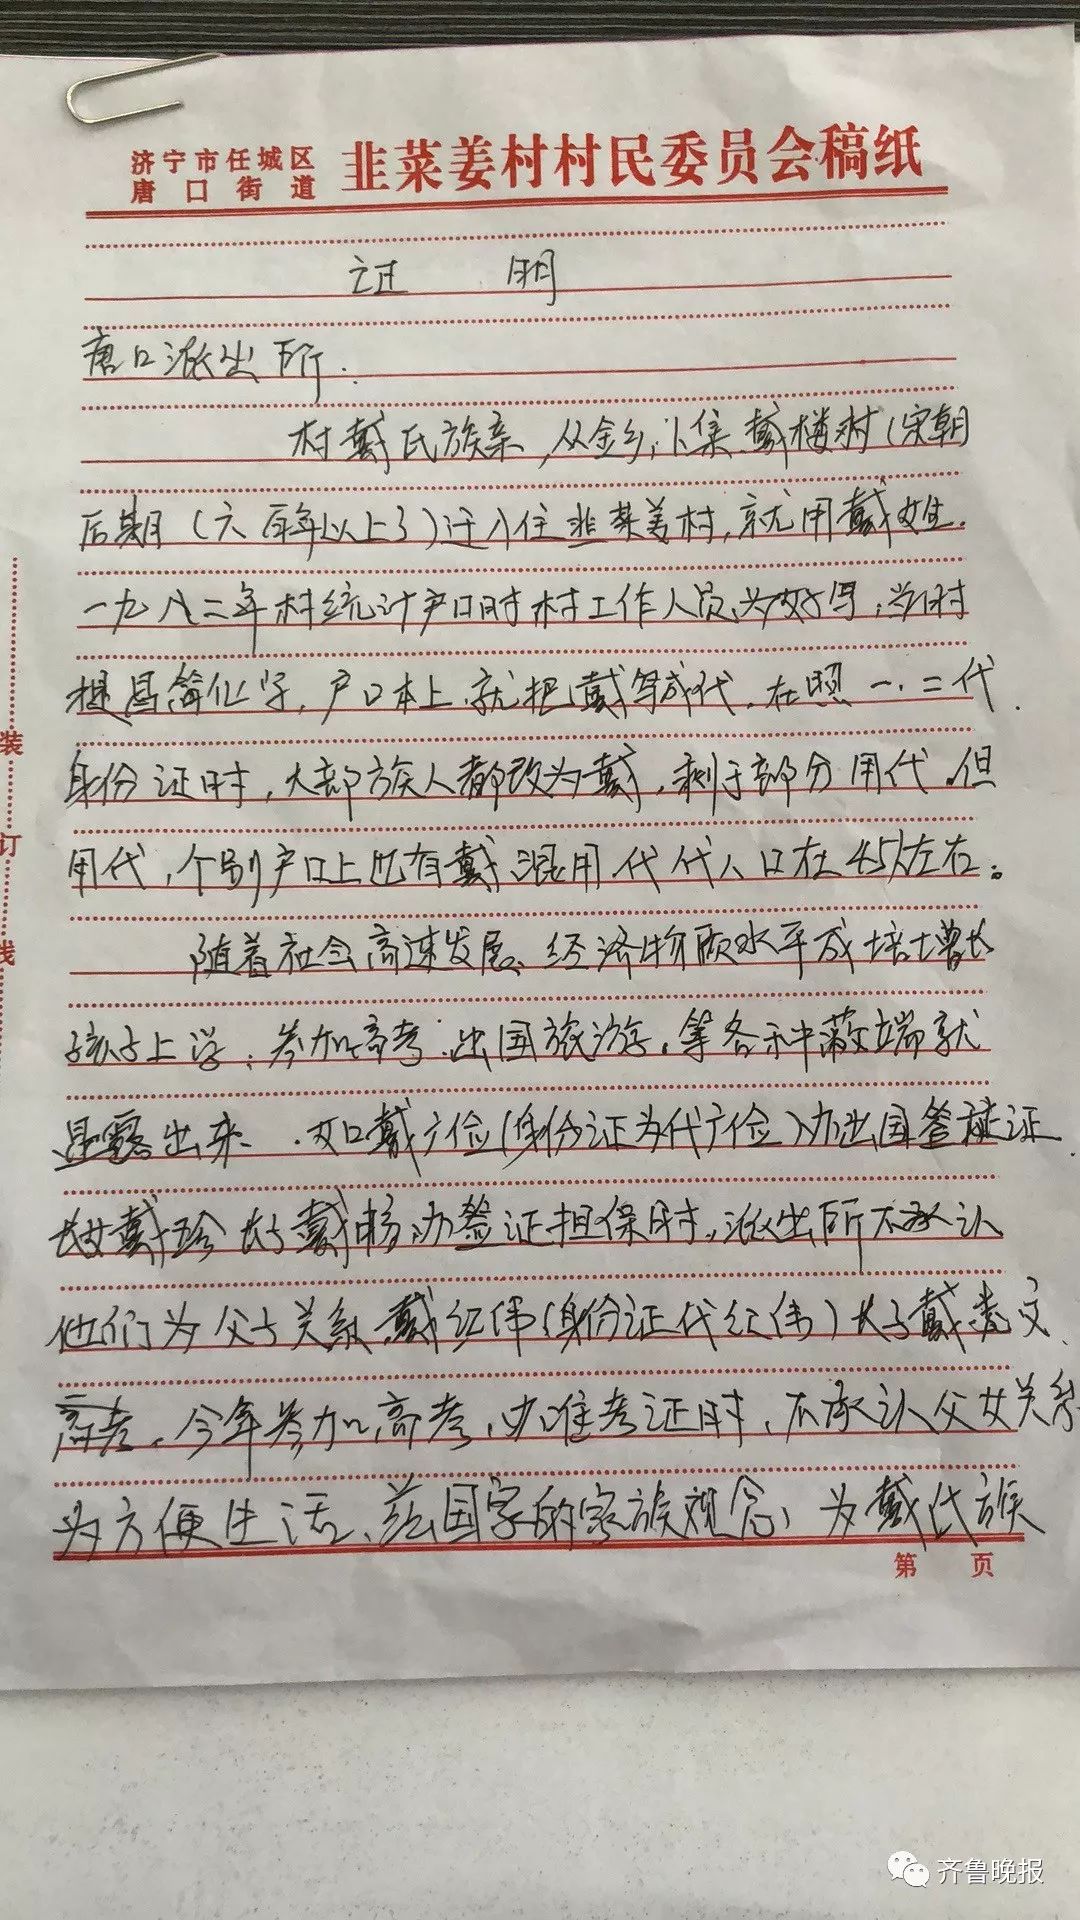 济宁市任城区
唐口街道
韭菜姜村村民委员会稿纸
证 明
唐口派出所:
村戴氏族亲,从金乡,卜集.戴楼村(宋朝
后期(六百年以上了)迁入住韭菜姜村,就用戴姓.
一九八二年村统计户口时村工作人员为好写,当时
提昌简化字,户口本上.就把戴写成代.在照一.二代
身份证时,大部族人都改为戴,剩于部分用代.但
用代,个别户口上也有戴.混用代 代人口在45人左右。
随着社会高速发展、经济物质水平成培增长
孩子上学.参加高考.出国旅游.等各种蔽端就
显露出来.如戴广俭(身份证为代广俭)办出国签证
长女戴珍 长子戴 办签证担保时,派出所不承认
他们为父子关系.戴红伟(身份证代红伟)长子戴 文
高考,今年参加高考,办准考证时,不承认父女关系
为方便生活、 国家的家族观念,为戴氏族
第 页
装
订
线
齐鲁晚报